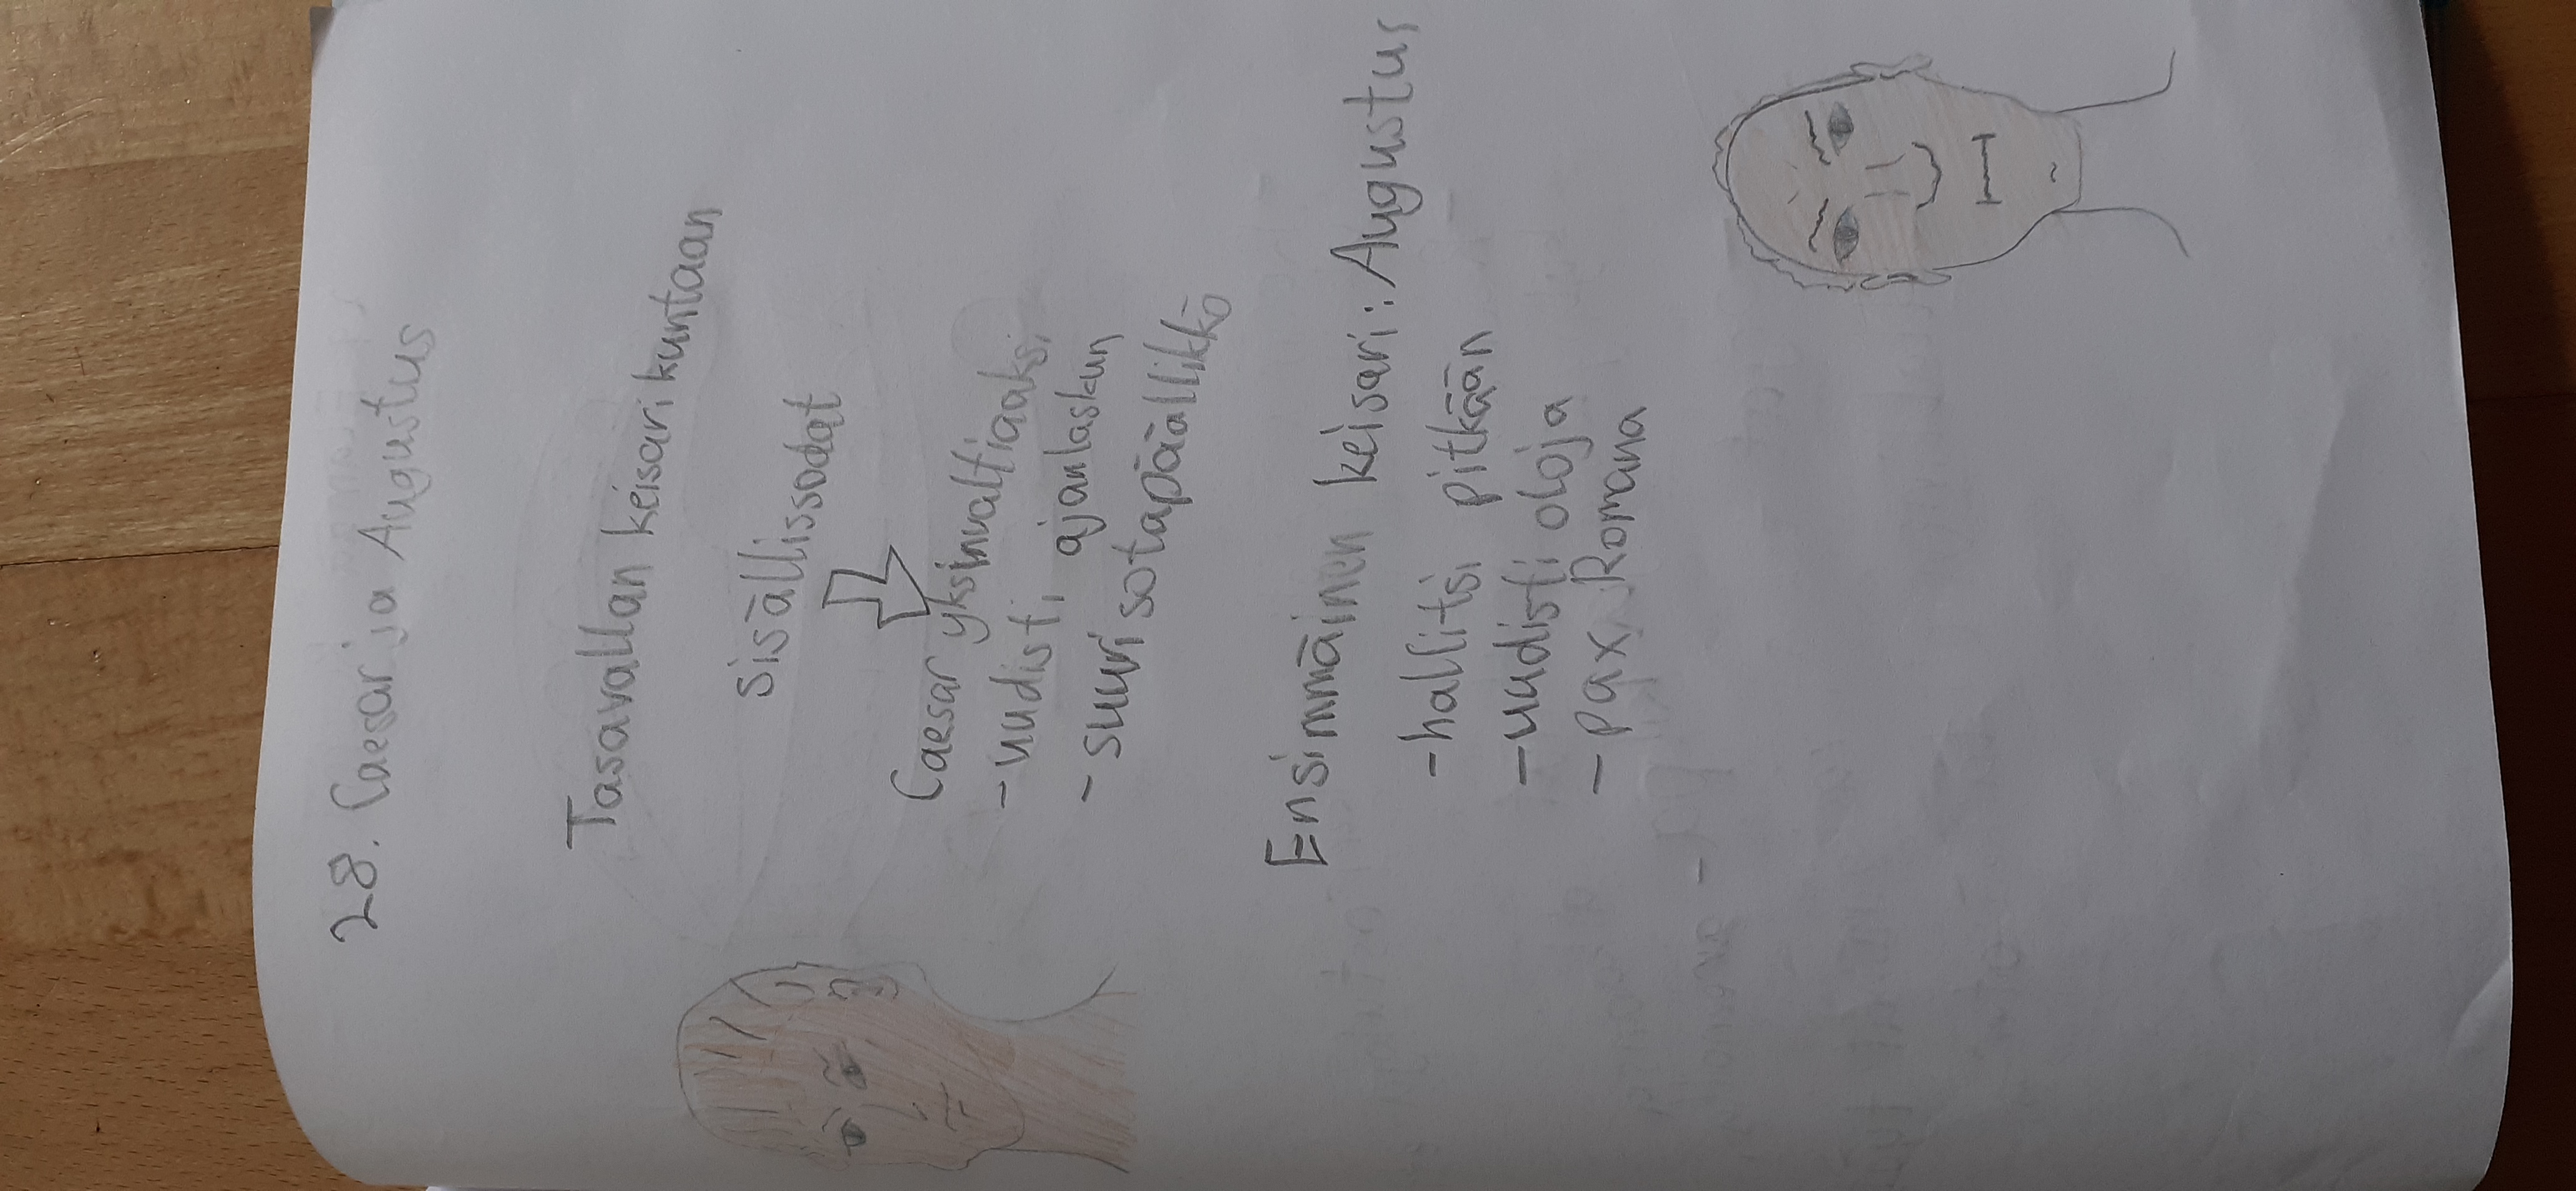 28. Caesar ja Augustus
Tasavallan keisarikuntaan
sisällissodat
Caesar yksinvaltiaaksi
- uudisti ajanlaskun
- suuri sotapäällikkö
Ensimmäinen keisari: Augustus
- hallitsi pitkään
- uudisti oloja
- pax Romana